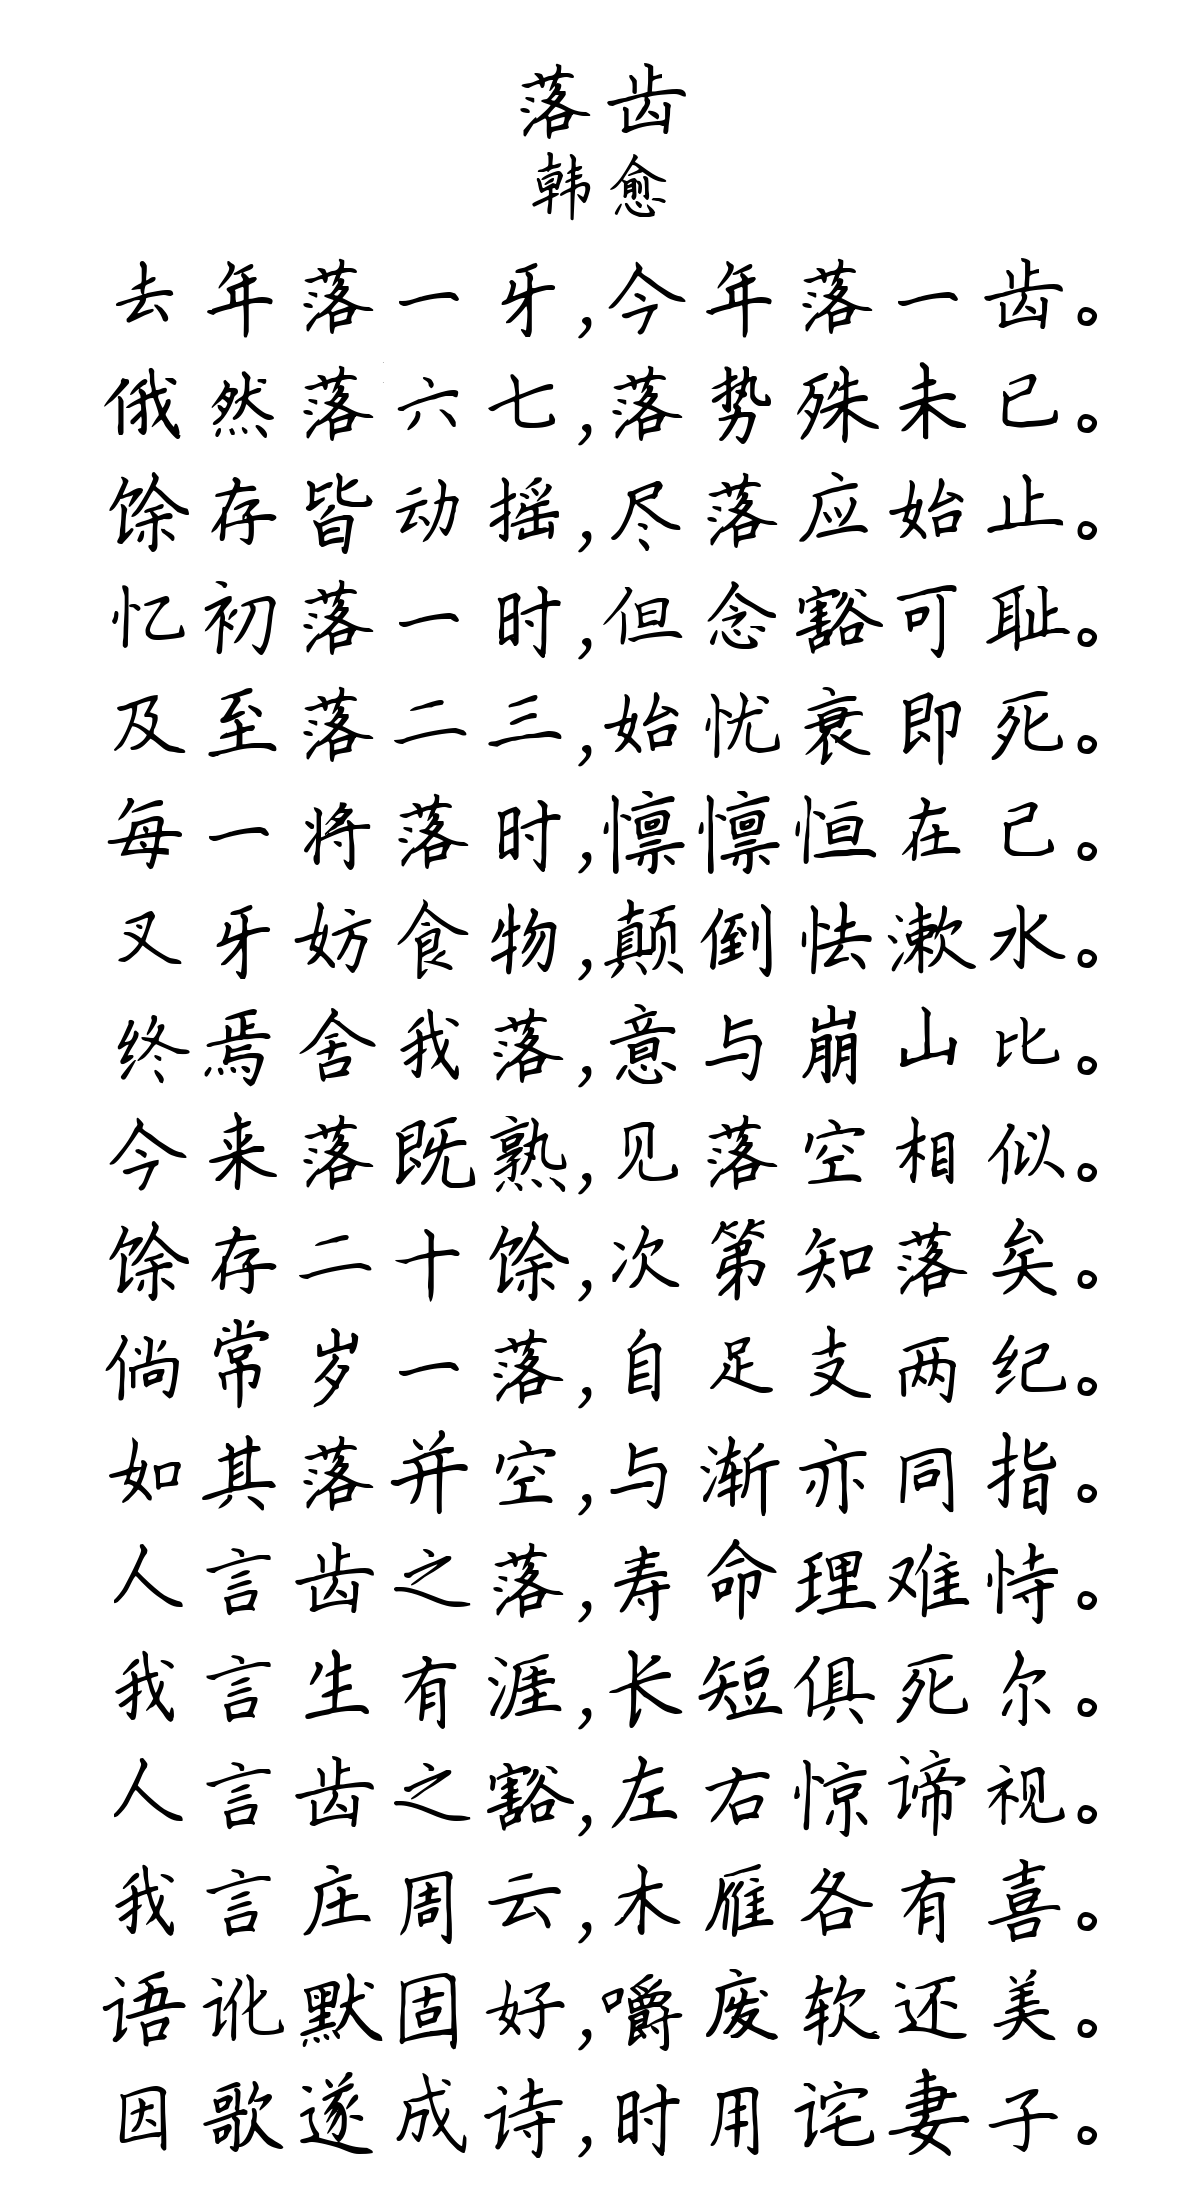 落齿
韩愈
去年落一牙,今年落一齿。
俄然落六七,落势殊未已。
馀存皆动摇,尽落应始止。
忆初落一时,但念豁可耻。
及至落二三,始忧衰即死。
每一将落时,懔懔恒在己。
叉牙妨食物,颠倒怯漱水。
终焉舍我落,意与崩山比。
今来落既熟,见落空相似。
馀存二十馀,次第知落矣。
倘常岁一落,自足支两纪。
如其落并空,与渐亦同指。
人言齿之落,寿命理难恃。
我言生有涯,长短俱死尔。
人言齿之豁,左右惊谛视。
我言庄周云,木雁各有喜。
语讹默固好,嚼废软还美。
因歌遂成诗,时用诧妻子。